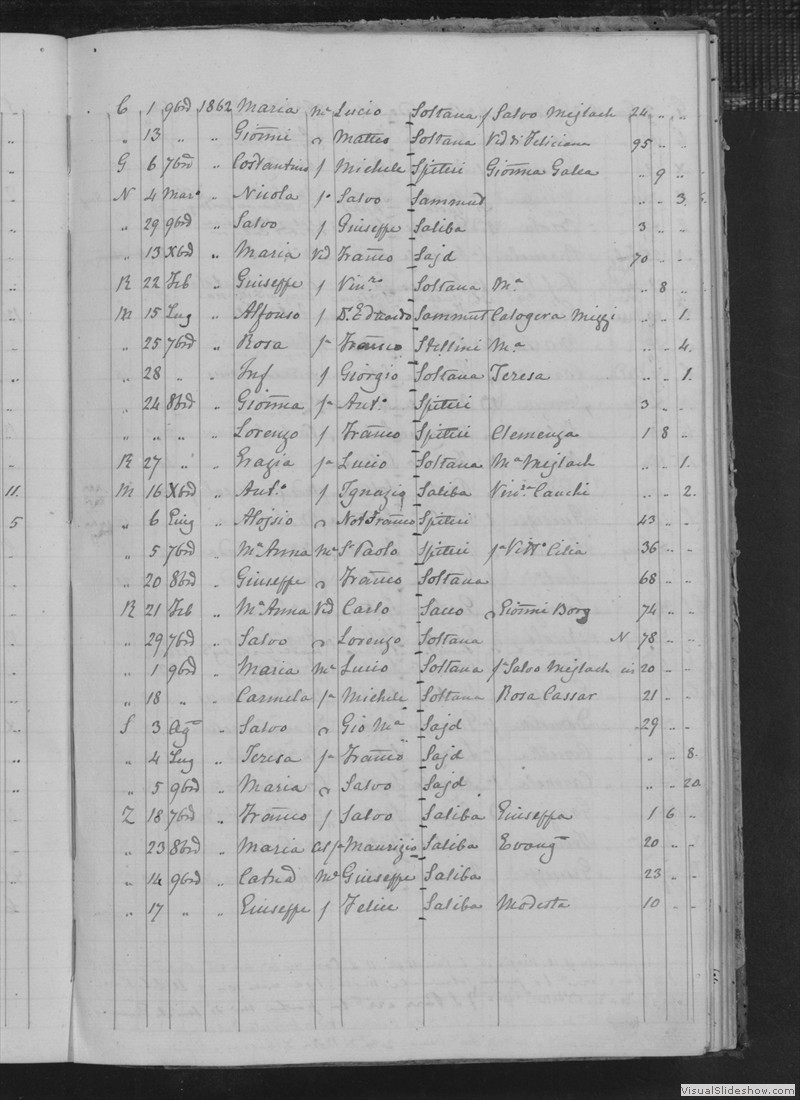 C 1 9brd 1862 Maria me Lucio Soltana f Salvo Mejlach 24 " "
" 13 " " Gioñni Matteo Soltana Vid di Feliciana 95 " "
G 6 7brd " Costantino f Michele Spiteri Gioñna Galea " 9 "
N 4 Mar " Nicola fo Salvo Sammut " " 3
" 29 9brd " Salvo f Giuseppe Saliba 3 " "
" 13 Xbrd " Maria Vid Franco Sajd 70 " "
R 22 Feb " Giuseppe f Vinzo Soltana Ma " 8 "
M 15 Lug " Alfonso f Dr Eduardo Sammut Calogera Mizzi " " 1
" 25 7brd " Rosa fa Franco Stellini Ma " " 4
" 28 " " Inf f Giorgio Soltana Teresa " " 1
" 24 8brd " Gioñna fa Anto Spiteri 3 " "
" " " " Lorenzo f Franco Spiteri Clemenza 1 8 "
R 27 " " Grazia fa Lucio Soltana Ma Mejlach " " 1
11. M 16 Xbrd " Anto f Ignazio Saliba Vinza Cauchi " " 2
5 " 6 Giug " Alojsio Not Franco Spiteri 43 " "
" 5 7brd " Ma Anna me Sr Paolo Spiteri fa Vitto Cilia 36 " "
" 20 8brd " Giuseppe Franco Soltana 68 " "
R 21 Feb " Ma Anna Vid Carlo Sacco Gioñni Borg 74 " "
" 29 7brd " Salvo Lorenzo Soltana N 78 " "
" 1 9brd " Maria me Lucio Soltana fa Salvo Mejlach in 20 " "
" 18 " " Carmela fa Michele Soltana Rosa Cassar 21 " "
S 3 Ago " Salvo Gio Ma Sajd 29 " "
" 4 Lug " Teresa fa Franco Sajd " " 8
" 5 9brd " Maria Salvo Sajd " " 20
Z 18 7brd " Franco f Salvo Saliba Giuseppa 1 6 "
" 23 8brd " Maria fa Maurizio Saliba Evanga 20 " "
" 14 9brd " Catnd me Giuseppe Saliba 23 " "
" 17 " " Giuseppe f Felice Saliba Modesta 10 " "
VisualSlideshow.com